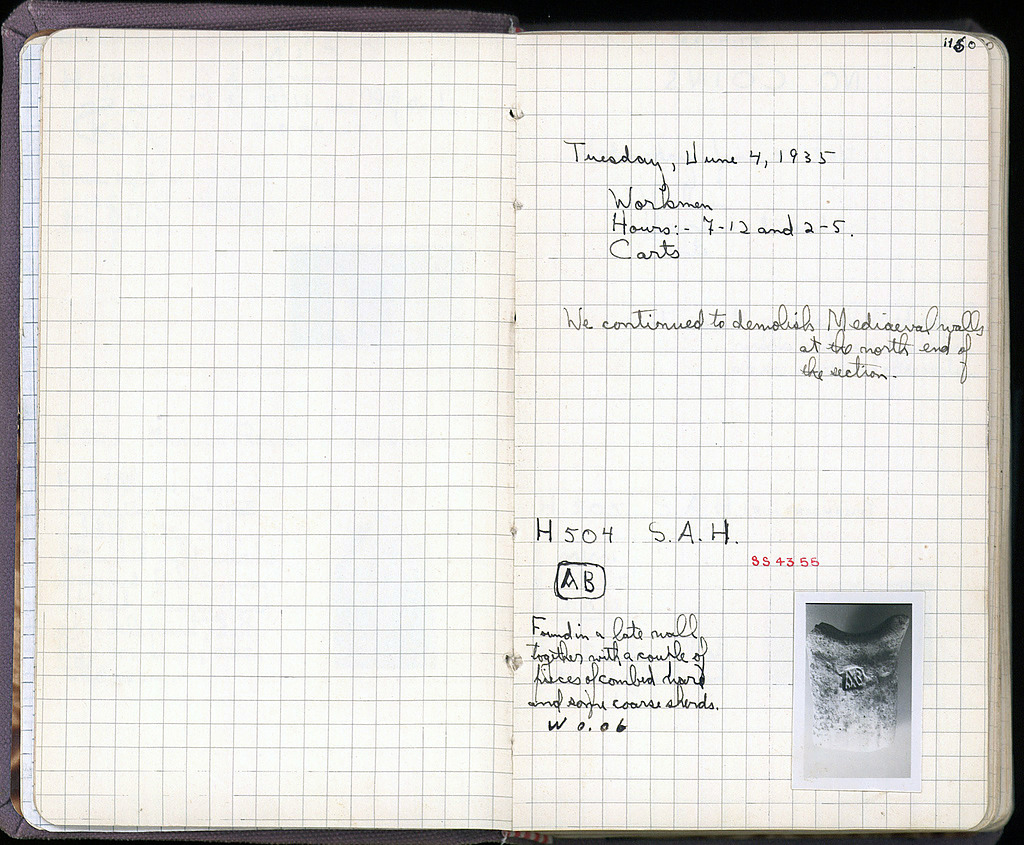 Tuesday, June 4, 1935
Workmen
Hours:- 7-12 and 2-5.
Carts
We continued to demolish Mediaeval walls
at the north end of
the section.
H 504 S.A.H.
SS 4355
AB
Found in a late wall
together with a couple of
pieces of combed ware
and some coarse sherds.
W 0.06